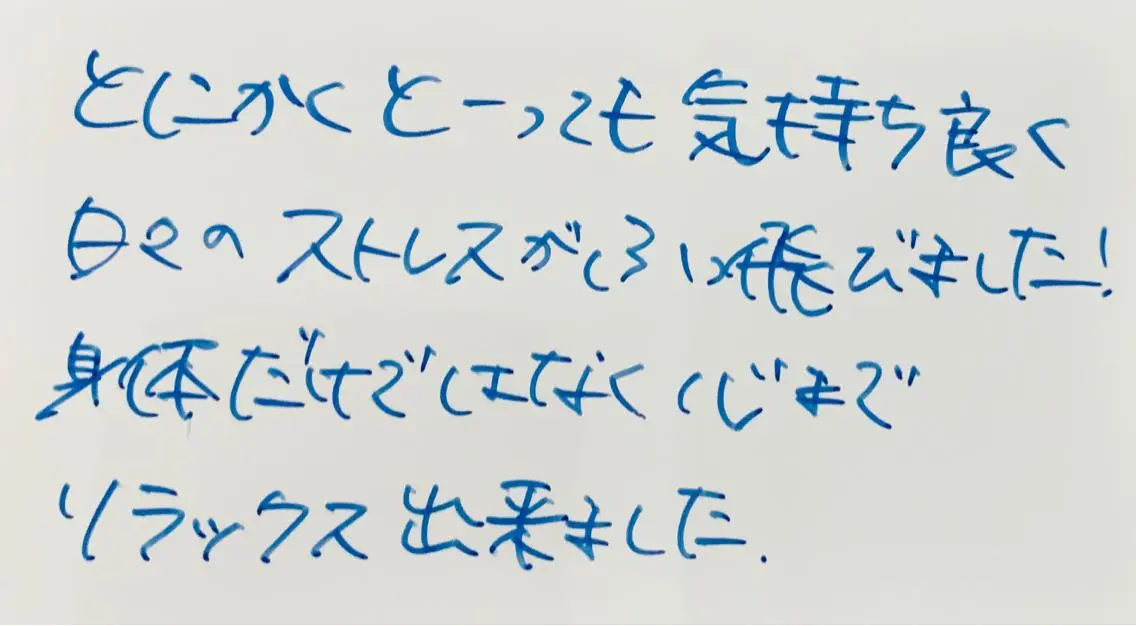 とにかくとーっても気持ち良く
日々のストレスがふっ飛びました!
身体だけではなく心まで
リラックス出来ました.